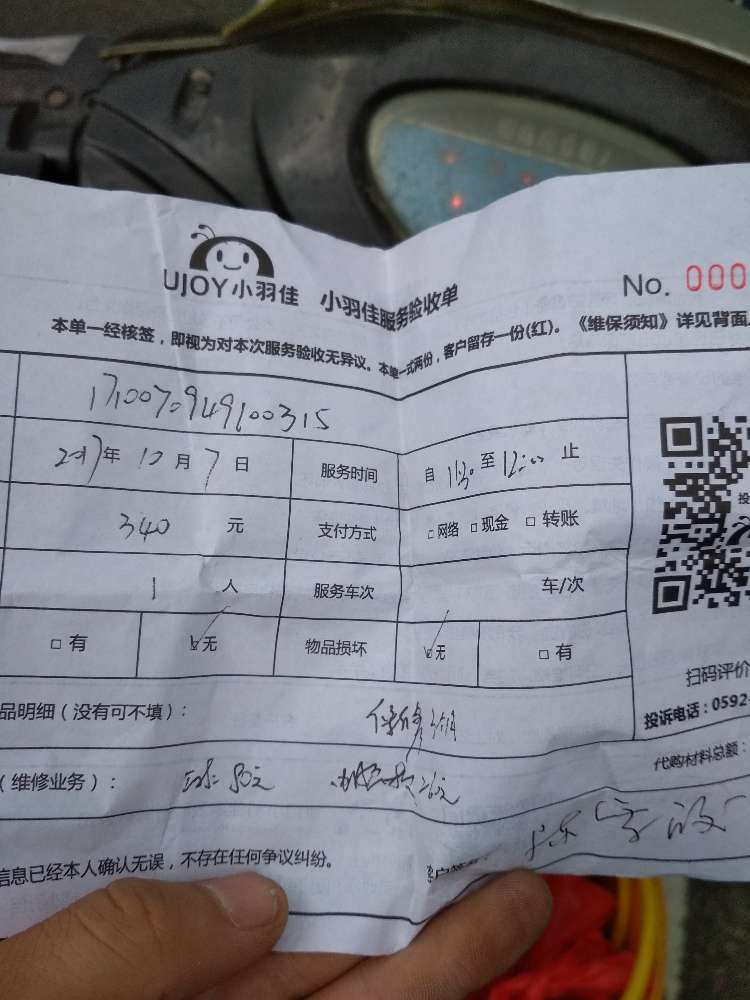 UJOY小羽佳 小羽佳服务验收单 No. 000
本单一经核签，即视为对本次服务验收无异议。本单一式两份，客户留存一份(红)。《维保须知》详见背面
1710070949100315
2017年 10月 7日 服务时间 自 11:30 至 12:00 止
340 元 支付方式 □网络 □现金 □转账
1 人 服务车次 车/次
□有 □无 物品损坏 □无 □有
扫码评价
品明细（没有可不填）： 保修3个月
投诉电话：0592-
（维修业务）： 80元 260元
代购材料总额：
信息已经本人确认无误，不存在任何争议纠纷。